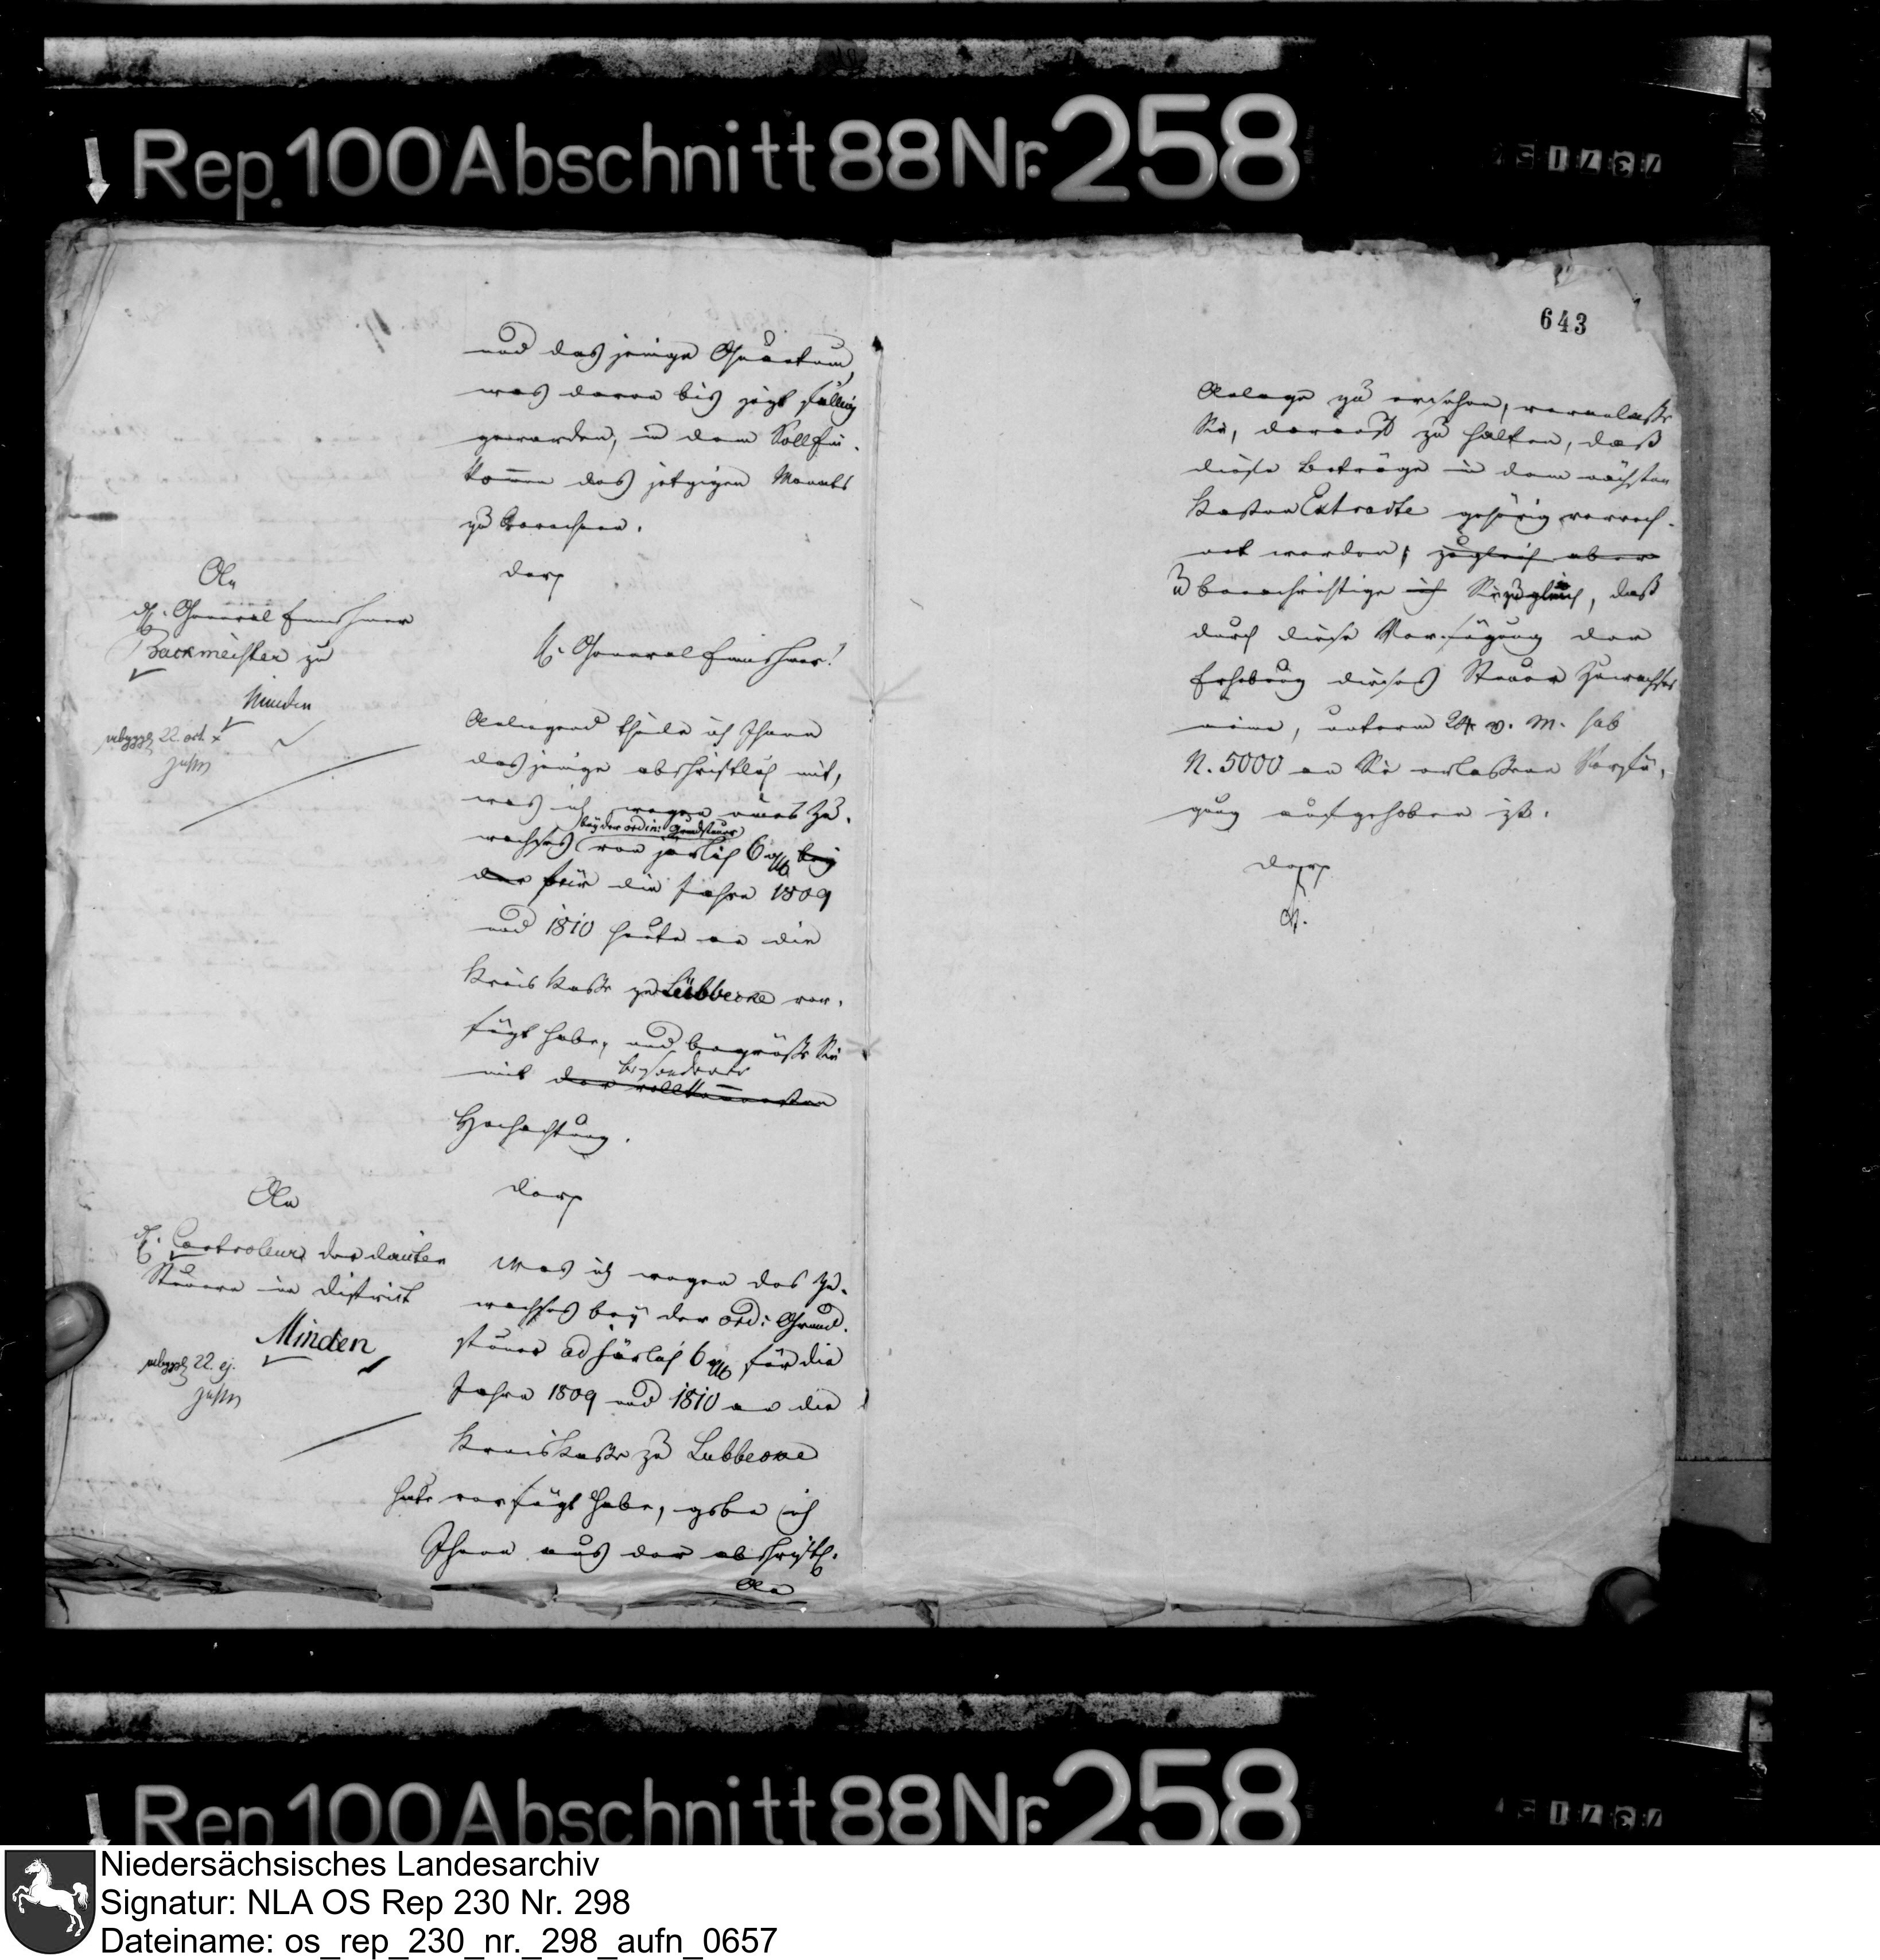 Rep. 100 Abschnitt 88 Nr. 258
und das jenige Quantum,
was davon bis jetzt fällig
geworden, in dem Solleinkommen
des jetzigen Monats
zu berechnen.
An
H. General Einnehmer
Backmeister zu
Minden
H. General Einnehmer!
Anliegend theile ich Ihnen
dasjenige abschriftlich mit,
was ich wegen eines Zu-
bey der ordin: Grundsteuer
wachses von järlich 6 bey
der für die Jahre 1809
und 1810 heute an die
Kreis Kasse zu Lübbecke ver-
fügt habe, und begrüße Sie
besonderer
mit der vollkommensten
Hochachtung.
An
H. Controleur der directen
Steuern im District
Minden
22. ej.
Was ich wegen des Zu-
wachses bey der ord: Grund-
steuer ad järlich 6 für die
Jahre 1809 und 1810 an die
Kreiskasse zu Lubbecke
heute verfügt habe, geben ich
Ihnen aus der abschriftl.
An
643
Anlage zu ersehen, veranlasse
Sie, darauf zu halten, daß
diese Beträge in dem nächsten
Kassen Extracte gehörig verrech-
net werden, zugleich aber
u benachrichtige ich Sie zugleich, daß
durch diese Verfügung der
Erhebung dieses Steuer Zuwachses
meine, unterm 24 v. M. sub
N. 5000 an Sie erlassene Verfü-
gung aufgehoben ist.
Rep 100 Abschnitt 88 Nr. 258
Niedersächsisches Landesarchiv
Signatur: NLA OS Rep 230 Nr. 298
Dateiname: os_rep_230_nr._298_aufn_0657